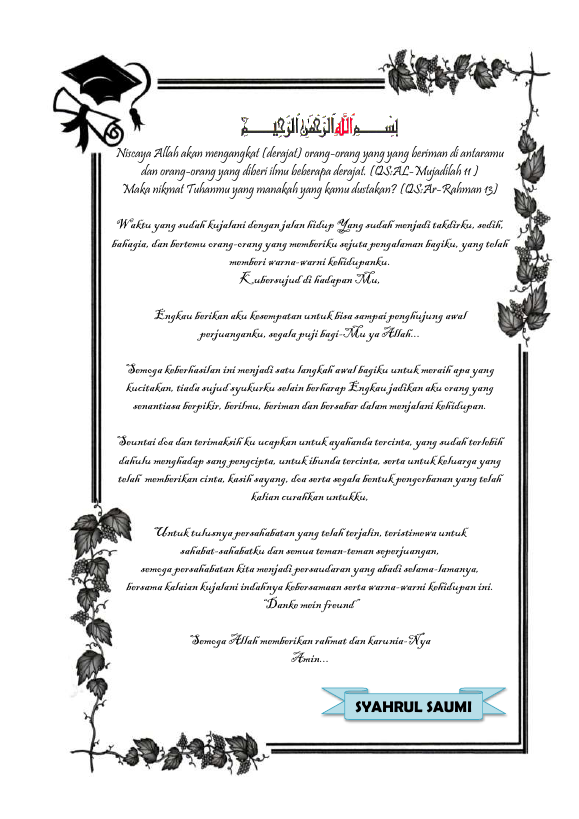 بِسْمِ اللَّهِ الرَّحْمَٰنِ الرَّحِيمِ
Niscaya Allah akan mengangkat (derajat) orang-orang yang yang beriman di antaramu
dan orang-orang yang diberi ilmu beberapa derajat. (QSAL-Mujadilah 11 )
Maka nikmat Tuhanmu yang manakah yang kamu dustakan? (QSAr-Rahman 13)
Waktu yang sudah kujalani dengan jalan hidup Yang sudah menjadi takdirku, sedih,
bahagia, dan bertemu orang-orang yang memberiku sejuta pengalaman bagiku, yang telah
memberi warna-warni kehidupanku.
Kubersujud di hadapan Mu,
Engkau berikan aku kesempatan untuk bisa sampai penghujung awal
perjuanganku, segala puji bagi-Mu ya Allah...
Semoga keberhasilan ini menjadi satu langkah awal bagiku untuk meraih apa yang
kucitakan, tiada sujud syukurku selain berharap Engkau jadikan aku orang yang
senantiasa berpikir, berilmu, beriman dan bersabar dalam menjalani kehidupan.
Seuntai doa dan terimaksih ku ucapkan untuk ayahanda tercinta, yang sudah terlebih
dahulu menghadap sang pengcipta, untuk ibunda tercinta, serta untuk keluarga yang
telah memberikan cinta, kasih sayang, doa serta segala bentuk pengerbanan yang telah
kalian curahkan untukku,
Untuk tulusnya persahabatan yang telah terjalin, teristimewa untuk
sahabat-sahabatku dan semua teman-teman seperjuangan,
semoga persahabatan kita menjadi persaudaran yang abadi selama-lamanya,
bersama kalaian kujalani indahnya kebersamaan serta warna-warni kehidupan ini.
"Danke mein freund"
Semoga Allah memberikan rahmat dan karunia-Nya
Amin...
SYAHRUL SAUMI